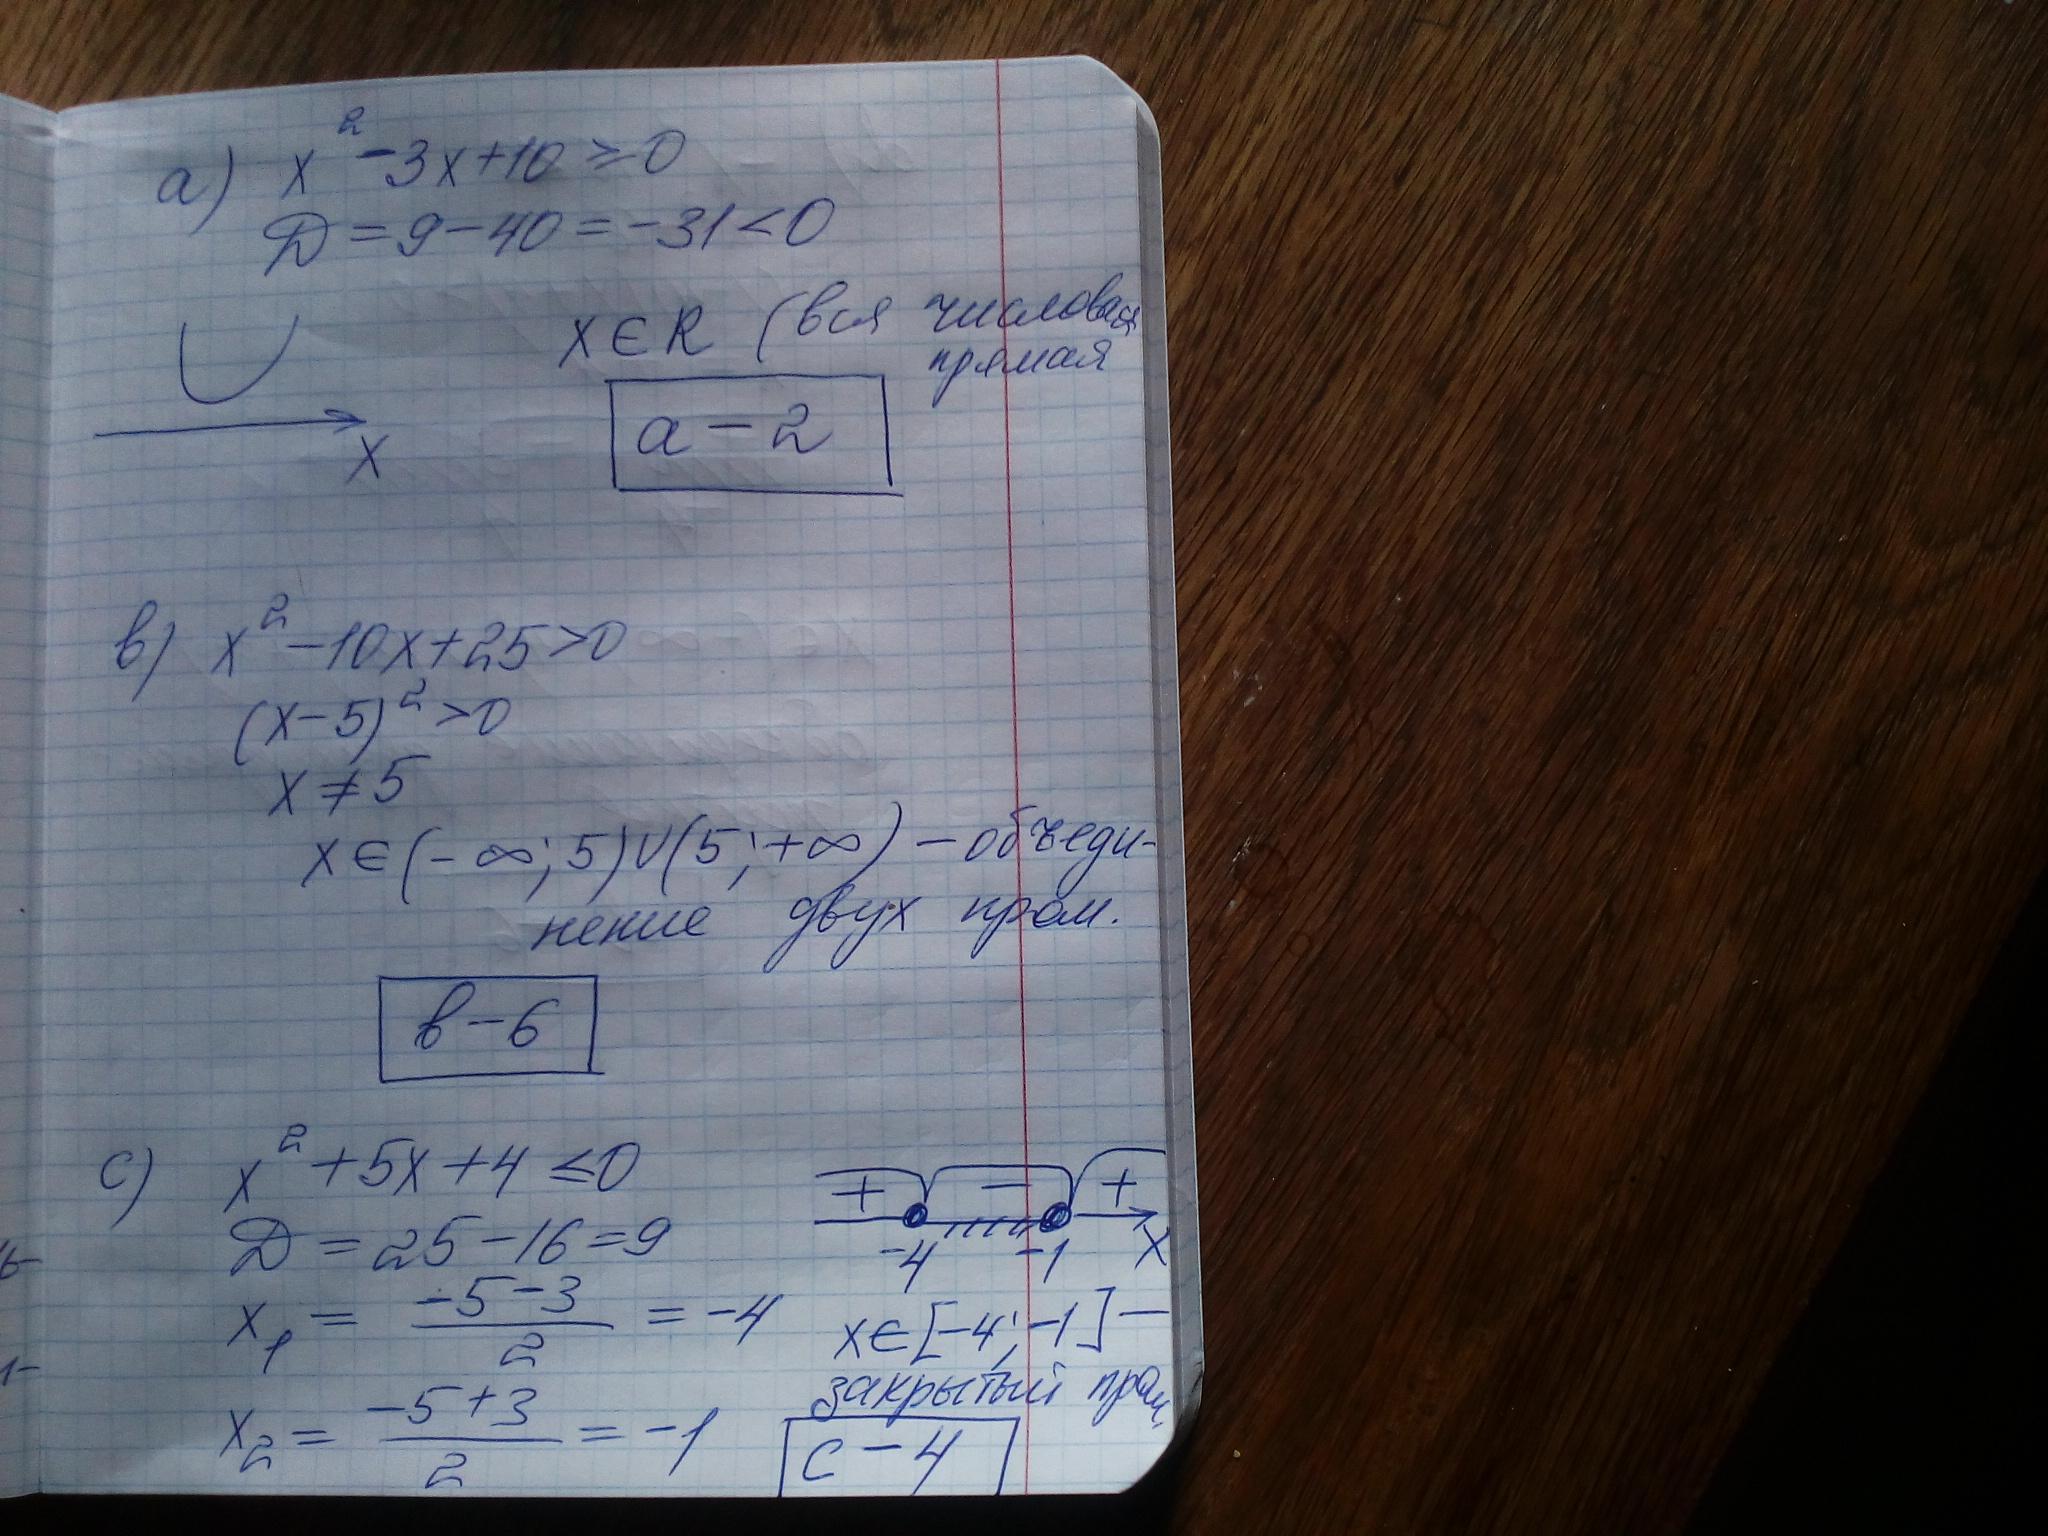 а) x² - 3x + 10 ≥ 0
Д = 9 - 40 = -31 < 0
x ∈ R (вся числовая
прямая
x
а - 2
в) x² - 10x + 25 > 0
(x - 5)² > 0
x ≠ 5
x ∈ (-∞; 5) ∪ (5; +∞) - объеди-
нение двух пром.
в - 6
с) x² + 5x + 4 ≤ 0
+ - +
Д = 25 - 16 = 9
-4 -1 x
x₁ = (-5 - 3)/2 = -4
x ∈ [-4; -1] -
закрытый пром.
x₂ = (-5 + 3)/2 = -1
с - 4